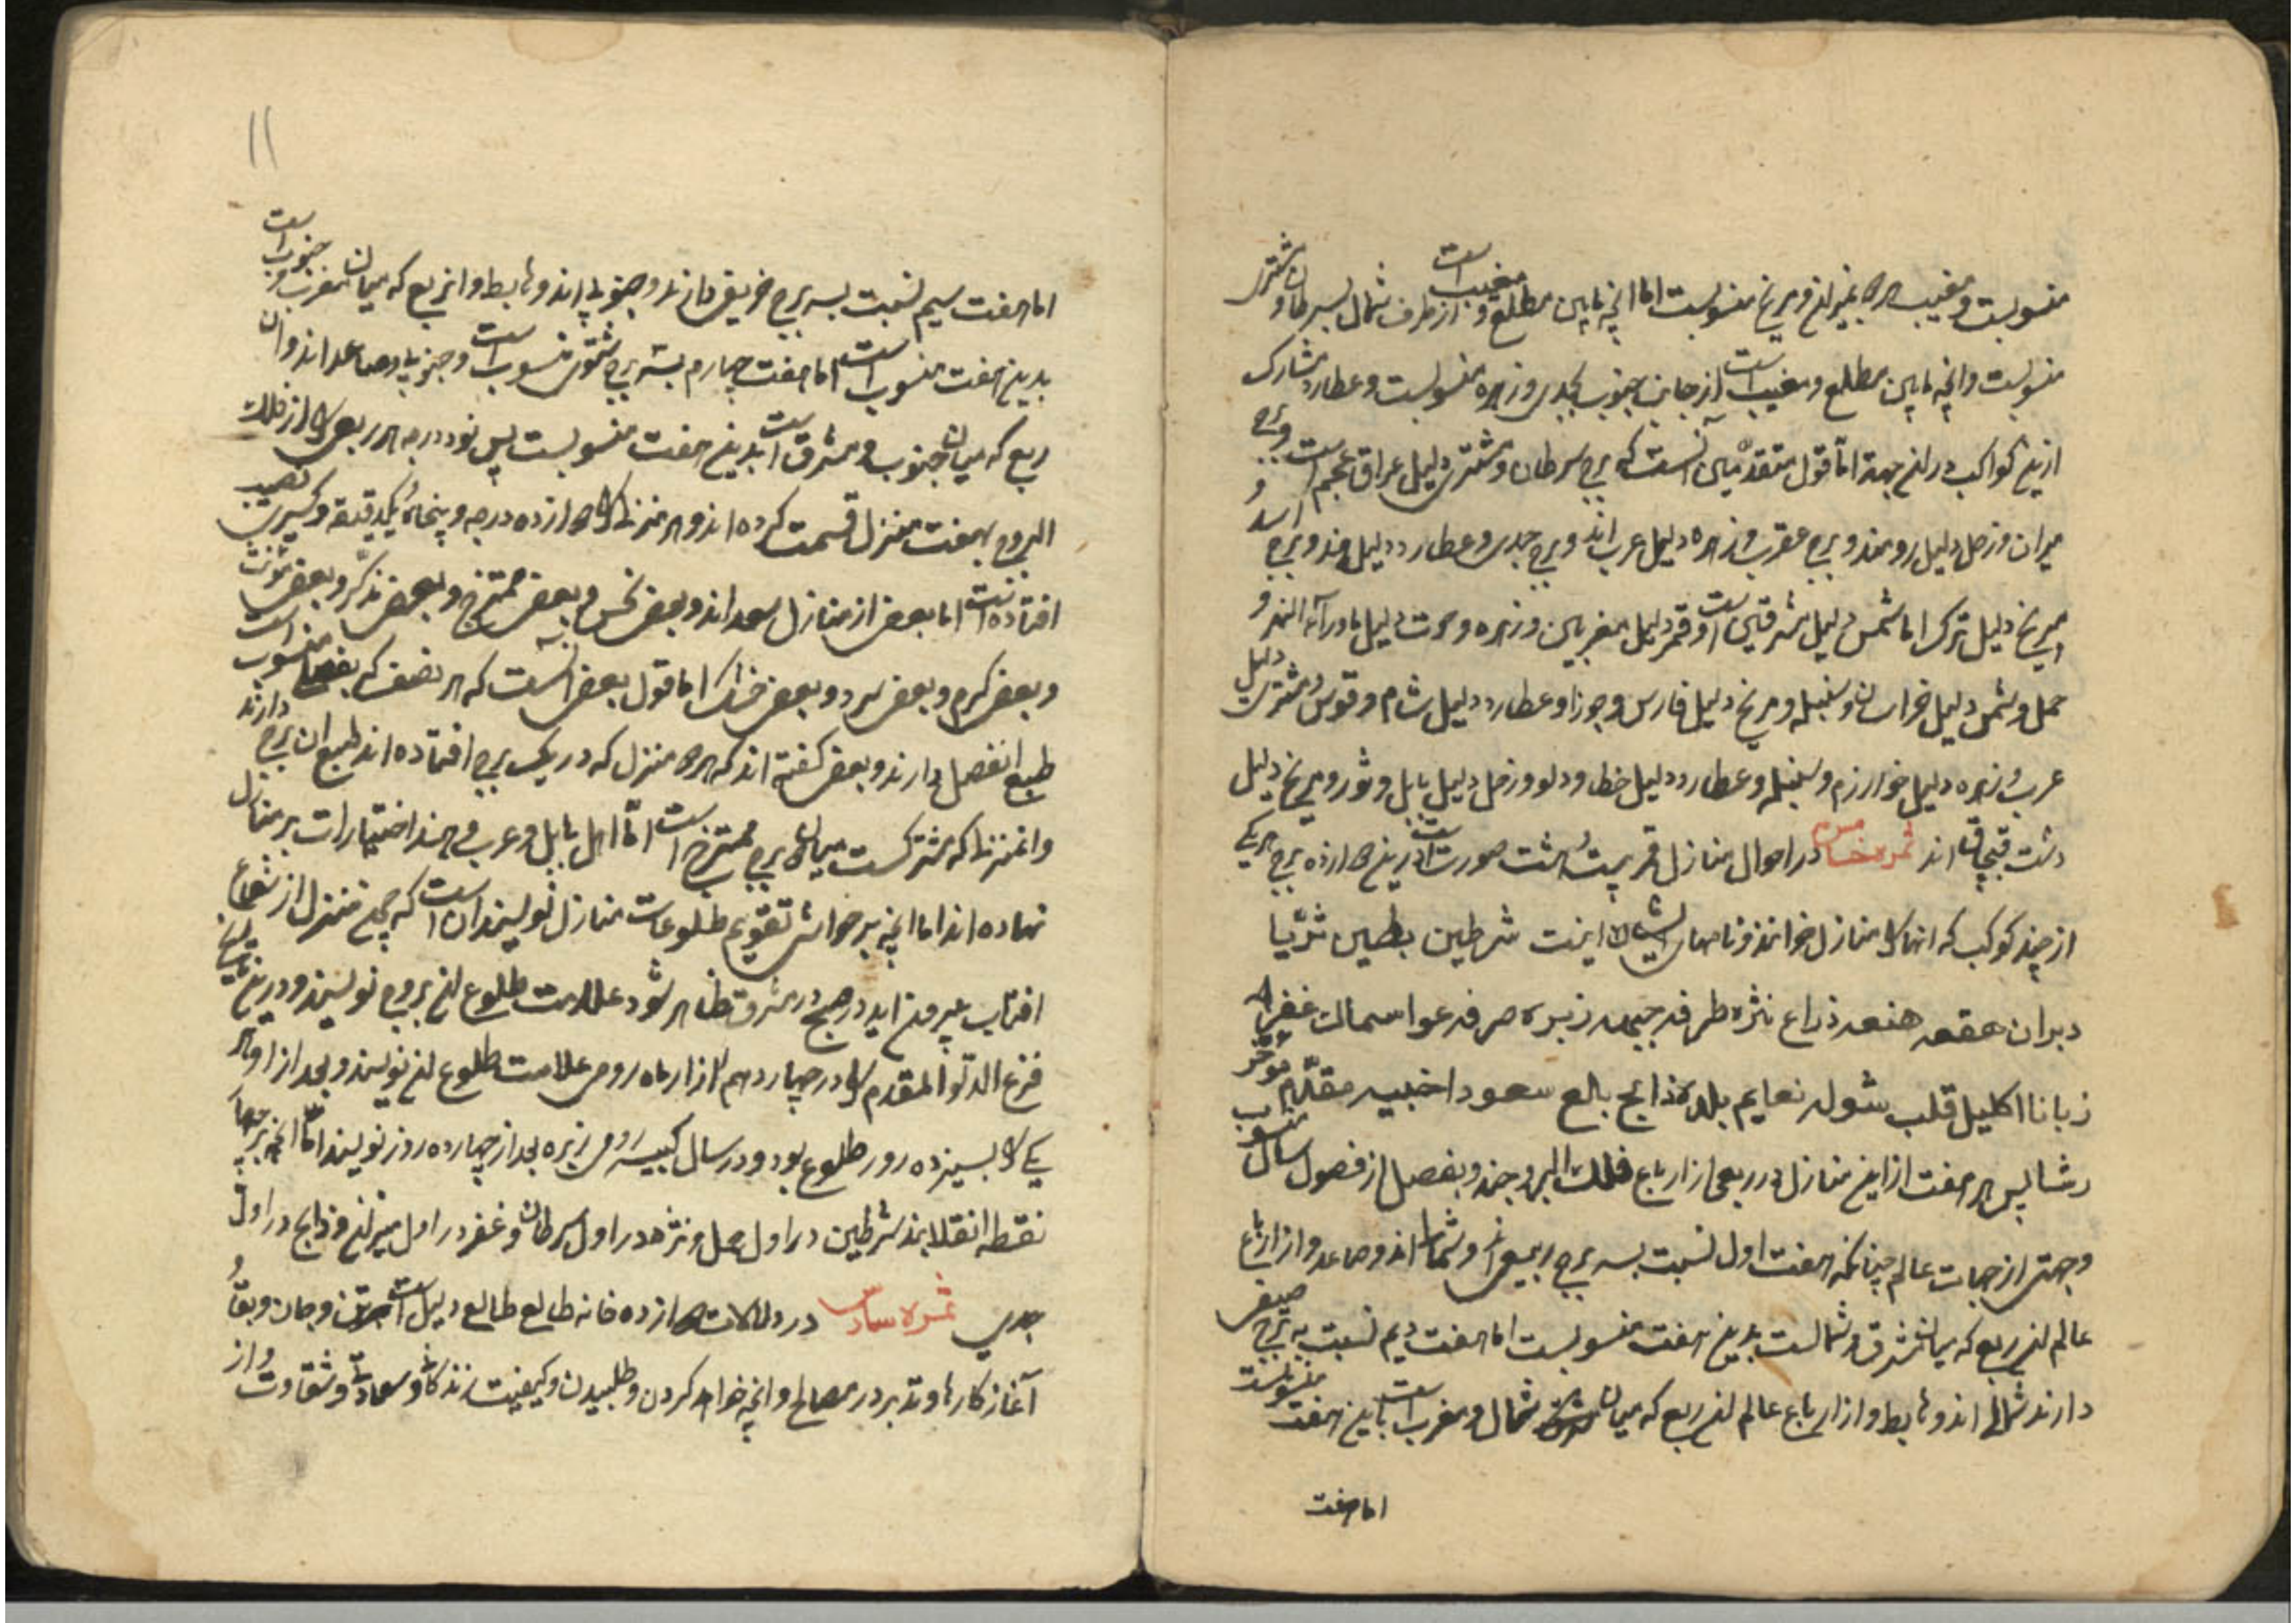 منسوبست و مغیب برج میزان و مریخ منسوبست اما انچه مابین مطلع و مغیب است از طرف شمال بسرطان و مشتری
منسوبست وانچه مابین مطلع و مغیب است از جانب جنوب بجدی و زهره منسوبست و عطارد مشارک
ازین کواکب در ان جهة اما قول متقدمین آنست که برج سرطان و مشتری دلیل عراق عجم است و برج
میزان و زحل دلیل رومند و برج عقرب و زهره دلیل عرب اند و برج جدی و عطارد دلیل هند و برج اسد و
مریخ دلیل ترک اما شمس دلیل مشرقین است و قمر دلیل مغربین و زهره و حوت دلیل ماورآء النهر و
حمل و شمس دلیل خراسان و سنبله و مریخ دلیل فارس و جوزا و عطارد دلیل شام و قوس و مشتری دلیل
عرب و زهره دلیل خوارزم و سنبله و عطارد دلیل خطا و دلو و زحل دلیل بابل و ثور و مریخ دلیل
دشت قبچاق اند ثمره خامس در احوال منازل قمر بیست و هشت صورت است درین دوازده برج هر یکی
از چند کوکب که انها را منازل خوانند و نامهای ایشان اینست شرطین بطین ثریا
دبران هقعه هنعه ذراع نثره طرفه جبهه زبره صرفه عوا سمالت غفر
زبانا اکلیل قلب شوله نعایم بلده ذابح بالع سعود اخبیه مقدّم موخّر
رشا پس هر هفت از این منازل در ربعی از ارباع فلک البروجند و بفصل از فصول سال منسوب
و جهتی از جهات عالم چنانکه هفت اول نسبت بسه برج ربیعی اند و شمالی اند و صاعد و از ارباع
عالم ان ربع که میان مشرق و شمالست بدین هفت منسوبست اما هفت دیم نسبت به برج صیفی
دارند شمالی اند و هابط و از ارباع عالم ان ربع که میان شمال و مغرب است باین هفت منسوبست
اما هفت
۱۱
اما هفت سیم نسبت بسه برج خریفی دارند و جنوبی اند و هابط و ان ربع که میان مغرب و جنوب است
بدین هفت منسوب است اما هفت چهارم بسه برج شتوی منسوب است و جنوبی و صاعد اند و ان
ربع که میان جنوب و مشرق است بدین هفت منسوبست پس نود درجه هر ربعی را از فلک
البروج بهفت منزل قسمت کرده اند و هر منزل را دوازده درجه و پنجاه و یکدقیقه و کسری نصیب
افتاده است اما بعضی از منازل سعد اند و بعضی نحس و بعضی ممتزج و بعضی مذکّر و بعضی مؤنث
و بعضی گرم و بعضی سرد و بعضی خشک اما قول بعضی آنست که هر نصف که بفصلی منسوب است
طبع انفصل دارند و بعضی گفته اند که هر منزل که در یک برج افتاده اند طبع ان برج دارند
وانمنزل که مشترکست میان دو برج ممتزج است امّا اهل بابل و عرب و هند اختیارات بر منازل
نهاده اند اما انچه بر حواشی تقویم طلوعات منازل نویسند ان است که چون منزل از شعاع
افتاب بیرون اید در صبح در مشرق ظاهر شود علامت طلوع ان بروج نویسند و درین تاریخ
فرغ الدلو المقدم را در چهاردهم اذار ماه رومی علامت طلوع ان نویسند و بعد از او هر
یکی را بسیزده روز طلوع بود و در سال کبیسه رومی زبره بعد از چهارده روز نویسند امّا انچه بر چهار
نقطه انقلابند شرطین در اول حمل و نثره در اول سرطان و غفر در اول میزان و ذابح در اول
جدی ثمره سادس در دلالات دوازده خانه طالع طالع دلیل است بر تن و جان و بقا و
آغاز کارها و تدبر در مصالح وانچه خواهد کردن و طلبیدن و کیفیت زندگانی و سعادت و شقاوت و از